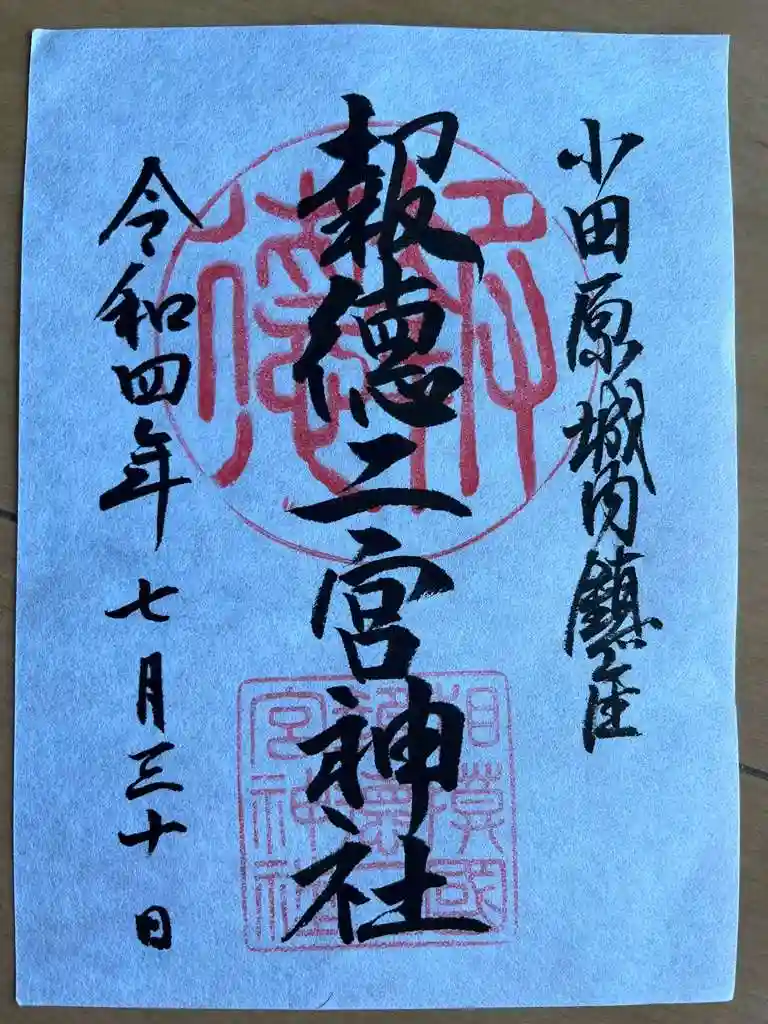 小田原城内鎮座
報徳二宮神社
令和四年七月三十日
報徳
相模國
報徳二
宮神社